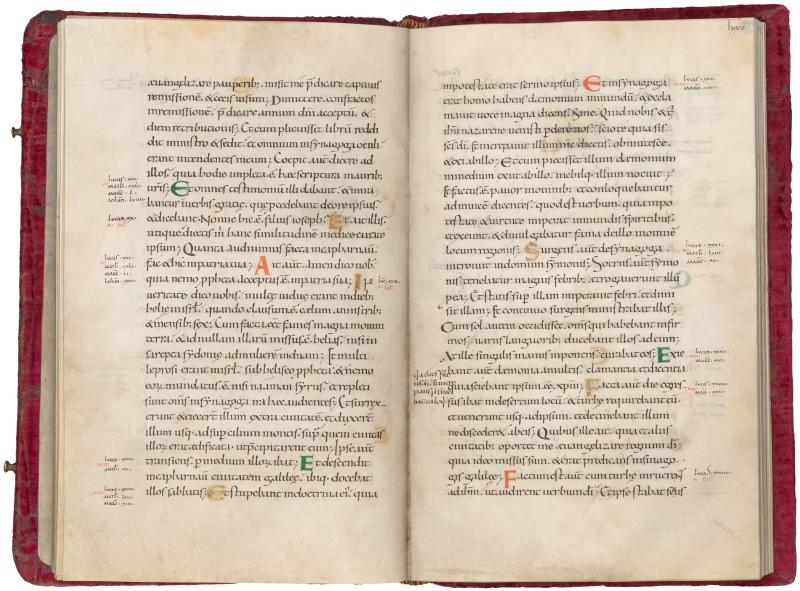 euangelizare pauperib; misit me p̄dicare captiuis
remissionē. & cecis uisum; Dimittere confractos
in remissionē. p̄dicare annum dn̄i acceptū &
diem retributionis; Et cum plicuisset librū reddi
dit ministro & sedit. et omnium in synagoga oculi
erant intendentes in eum; Coepit aut̄ dicere ad
illos. quia hodie impleta ē haec scriptura in aurib;
uris; Et omnes testimoniū illi dabant. & mira
bantur in uerbis gratię. quę procedebant de ore ipsius;
& dicebant. Nonne hic ē filius ioseph; Et ait illis.
utique dicetis m̄ hanc similitudinē medice cura te
ipsum; Quanta audiuimus facta in capharnaū.
fac & hic in patria tua; Ait aut̄. amen dico uob.
quia nemo ppheta acceptus ē in patria sua; In
ueritate dico uobis. multę uiduę erant in dieb;
helię in isrl. quando clausum ē cælum annis trib;
& mensib; sex; Cum facta eēt fames magna in omni
terra. & ad nullam illarū missus ē helias. nisi in
sarepta sydonię ad mulierē uiduam; Et multi
leprosi erant in isrl. sub heliseo ppheta. & nemo
eorū mundatus ē nisi naaman syrus. et repleti
sunt om̄s in synagoga ira hęc audientes; Et surrexe
runt & eiecerunt illum extra ciuitatē. et duxerunt
illum usq; ad supcilium montis. sup quem ciuitas
illorū erat ędificata. ut pcipitarent eum; Ipse aut̄
transiens p medium illorū ibat; Et descendit
in capharnaū ciuitatem galileę. ibiq; docebat
illos sabbatis; Et stupebant in doctrina ei'. quia
in potestate erat sermo ipsius; Et in synagoga
erat homo habens dæmonium inmundū. & excla
mauit uoce magna dicens; Sine. Quid nobis & t̄
ihū nazarene uenisti pdere nos; Scio te qui sis
scs̄ dī. & increpauit illum ihc dicens. obmutesce.
& exi ab illo; Et cum proiecisset illum dæmonium
in medium exiuit ab illo. nihilq; illum nocuit;
Et factus ē pauor in omnib; et conloquebantur
adinuicem dicentes; quod est uerbum. quia in po
testate & uirtute imperat inmundis spiritibus.
et exeunt. & diuulgabatur fama de illo in omnē
locum regionis; Surgens aut̄ de synagoga
introiuit in domum symonis; Socrus aut̄ symo
nis tenebatur magnis febrib; et rogauerunt illū
p ea; Et stans sup illam imperauit febri. et dimi
sit illam; Et continuo surgens ministrabat illis;
Cum sol autem occidisset. om̄s qui habebant infir
mos uariis languorib; ducebant illos ad eum;
At ille singulis manus inponens curabat eos; Exie
bant aut̄ demonia a multis. clamantia et dicentia
quia tu es filius dī
quia sciebant ipsum eē xp̄m; Facta aut̄ die egres
sus ibat in desertum locū. & turbę requirebant eū.
et uenerunt usq; ad ipsum. et detinebant illum
ne discederet ab eis; Quibus ille ait. quia et aliis
ciuitatib; oportet me euangelizare regnum dī.
quia ideo missus sum. & erat predicans in sinago
gis galileę; Factum est aut̄ cum turbę inruerent
ad ihm̄. ut audirent uerbum dī; Et ipse stabat secus